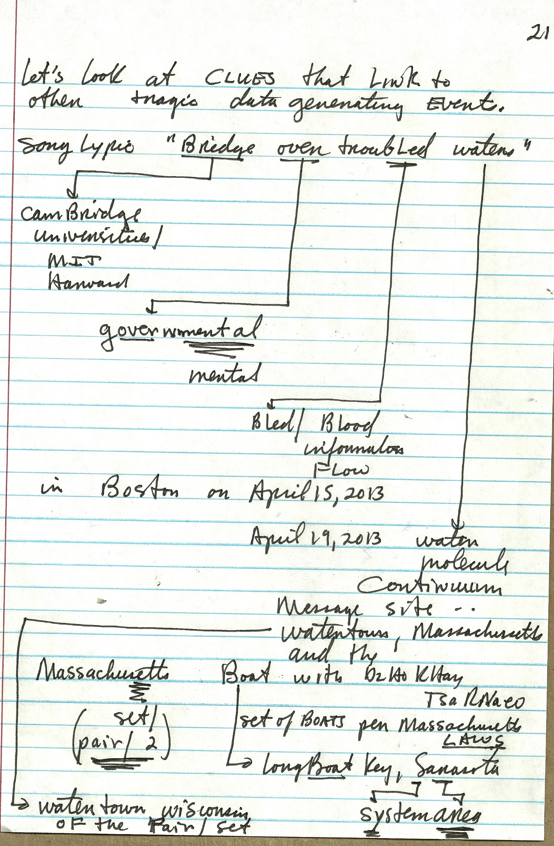 21
Let's look at CLUES that Link to
other tragic data generating Event.
Song Lyric "Bridge over troubled waters"
camBridge
universities/
MIT
Harvard
governmental
mental
Bled/ Blood
information
Flow
in Boston on April 15, 2013
April 19, 2013
water
molecule
Continuum
Message site ..
watertown, Massachusetts
and the
Massachusetts Boat with DzHo KHay
TsaRNaeo
set/
(pair/2)
set of BOATS per Massachusetts
LAWS
longBoat Key, Sarasota
watertown wisconsin
OF the Pair/set
system area